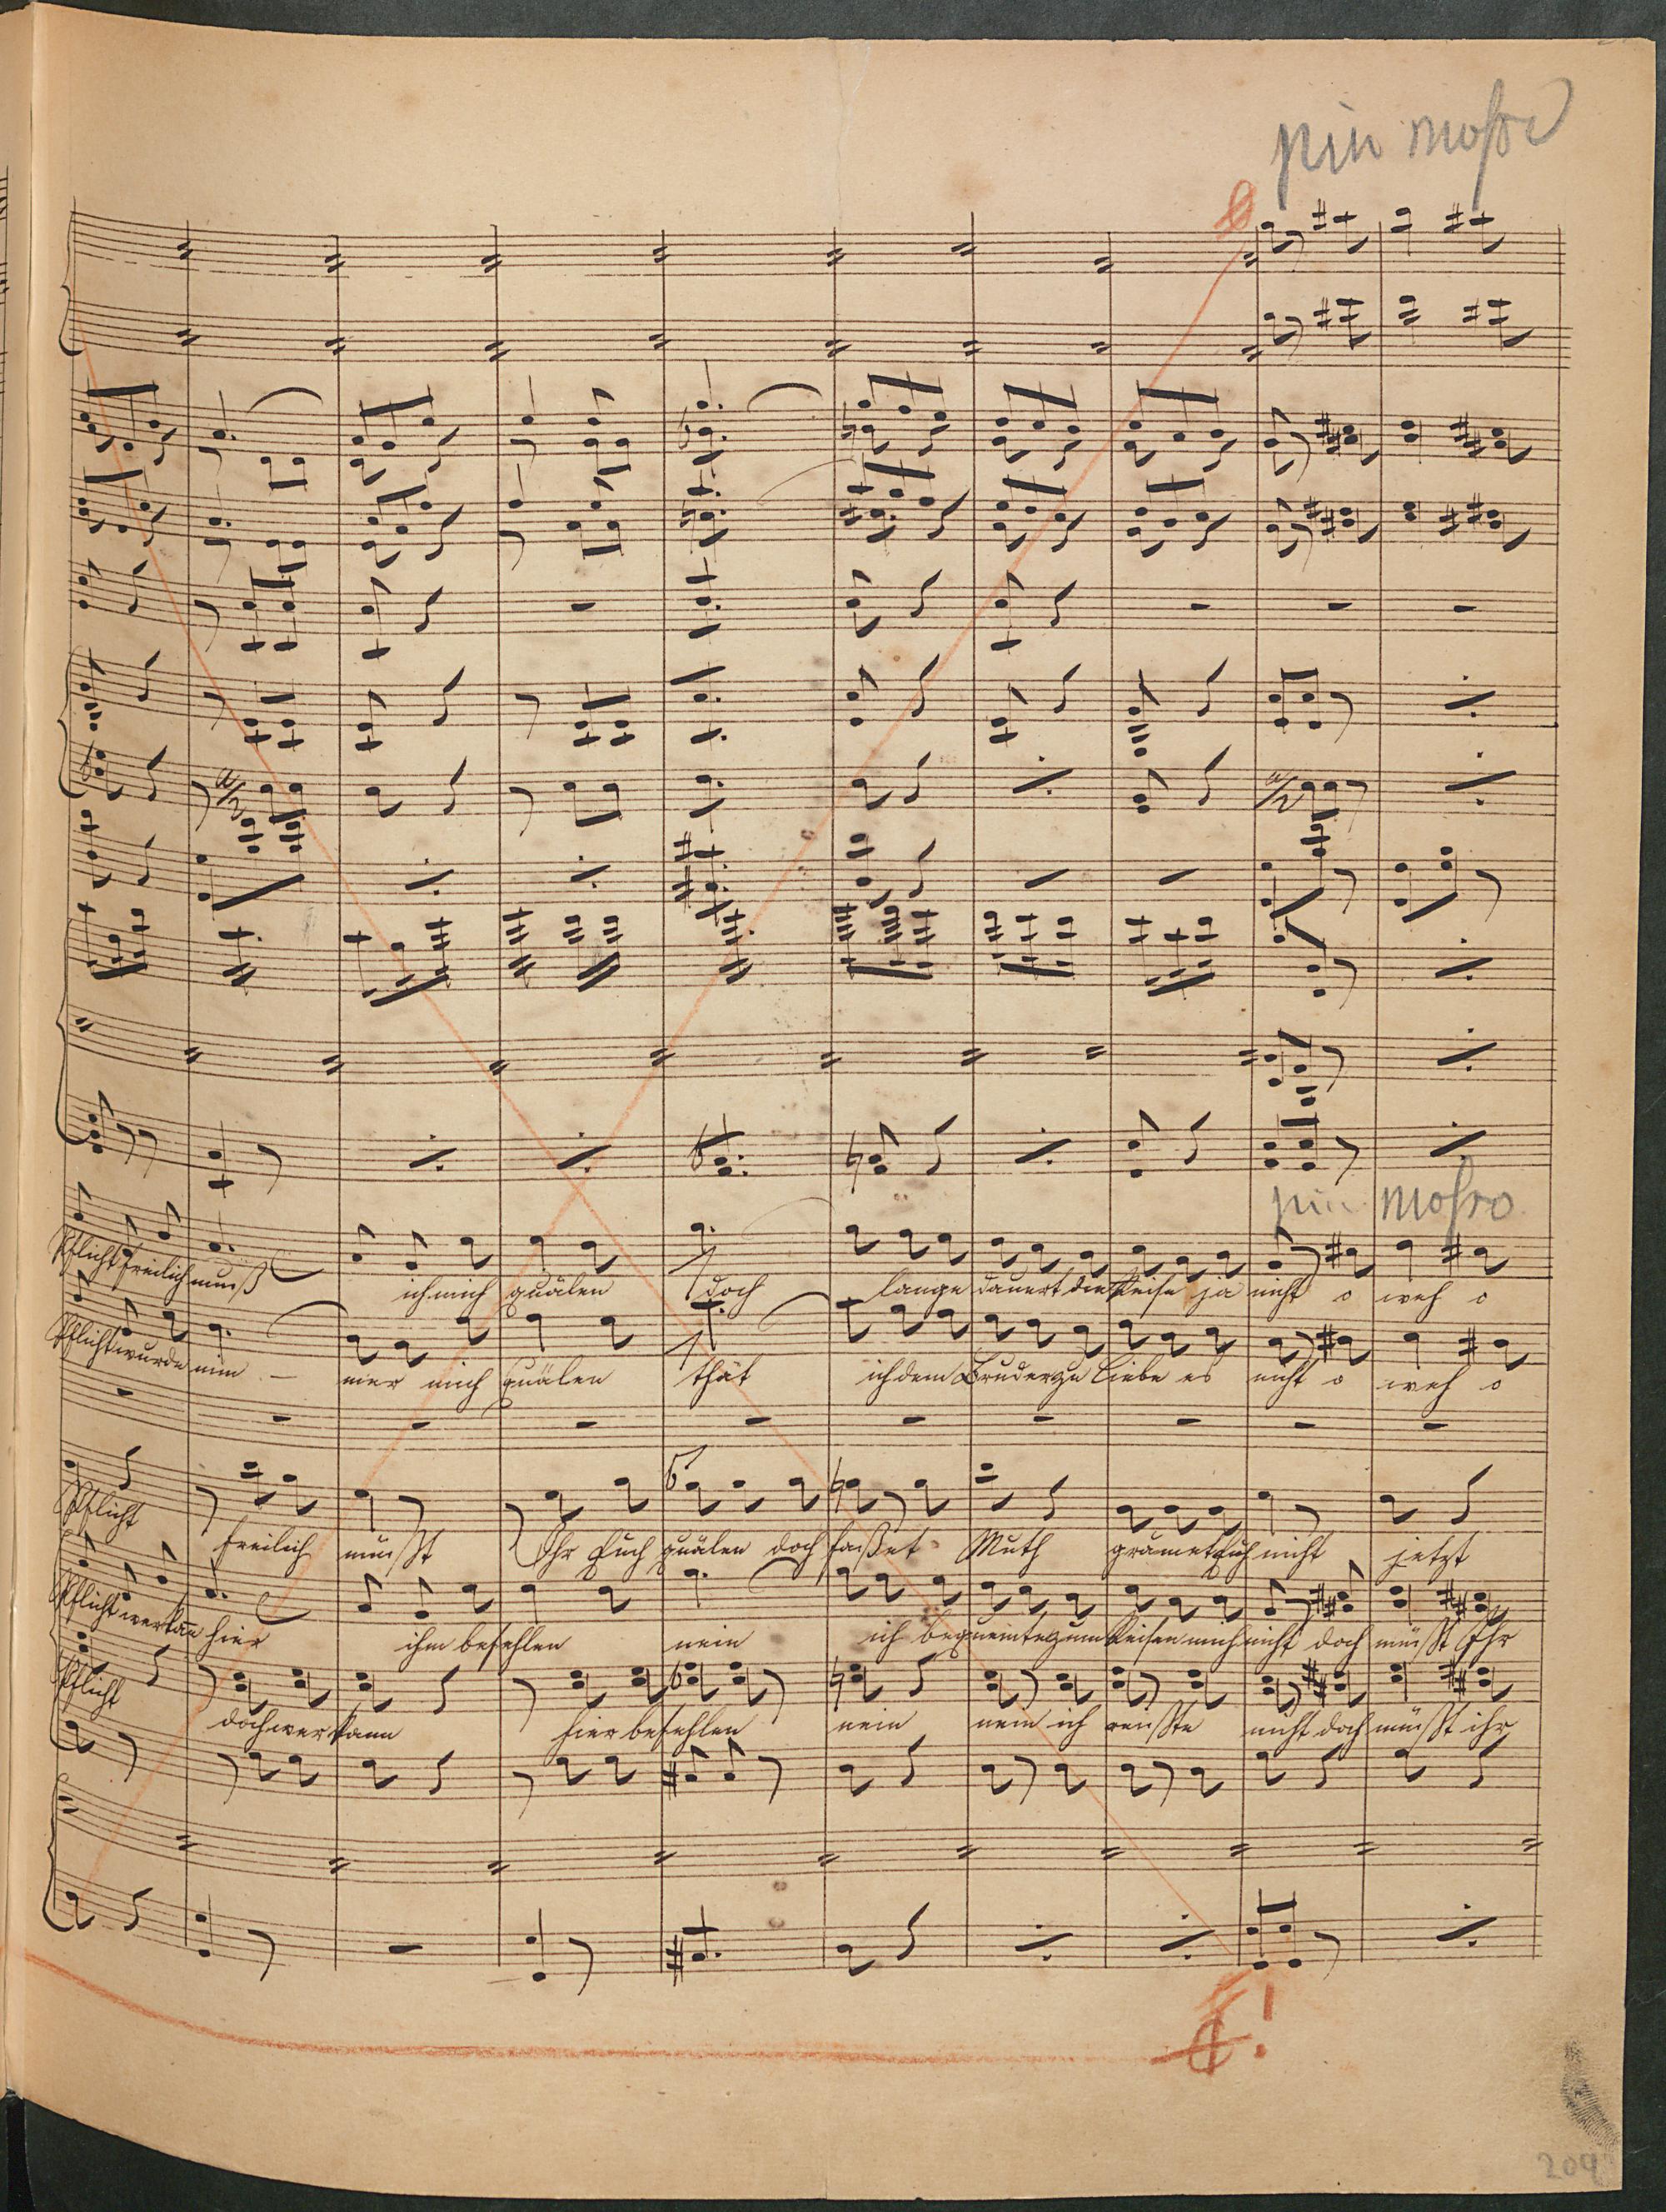 piu mosso
a/2
a/2
piu mosso
Pflicht freilich muß ich mich quälen doch lange dauert die Reise ja nicht o weh o
Pflicht wurde nim - mer mich quälen thät ich dem Bruder zu Liebe es nicht o weh o
Pflicht freilich müßt Ihr Euch quälen doch faßet Muth grämet Euch nicht jetzt
Pflicht wer kan hier ihm befehlen nein ich bequemte zum Reisen mich nicht doch müßt Ihr
Pflicht doch wer kann hier befehlen nein nein ich reißte nicht doch müßt ihr
209